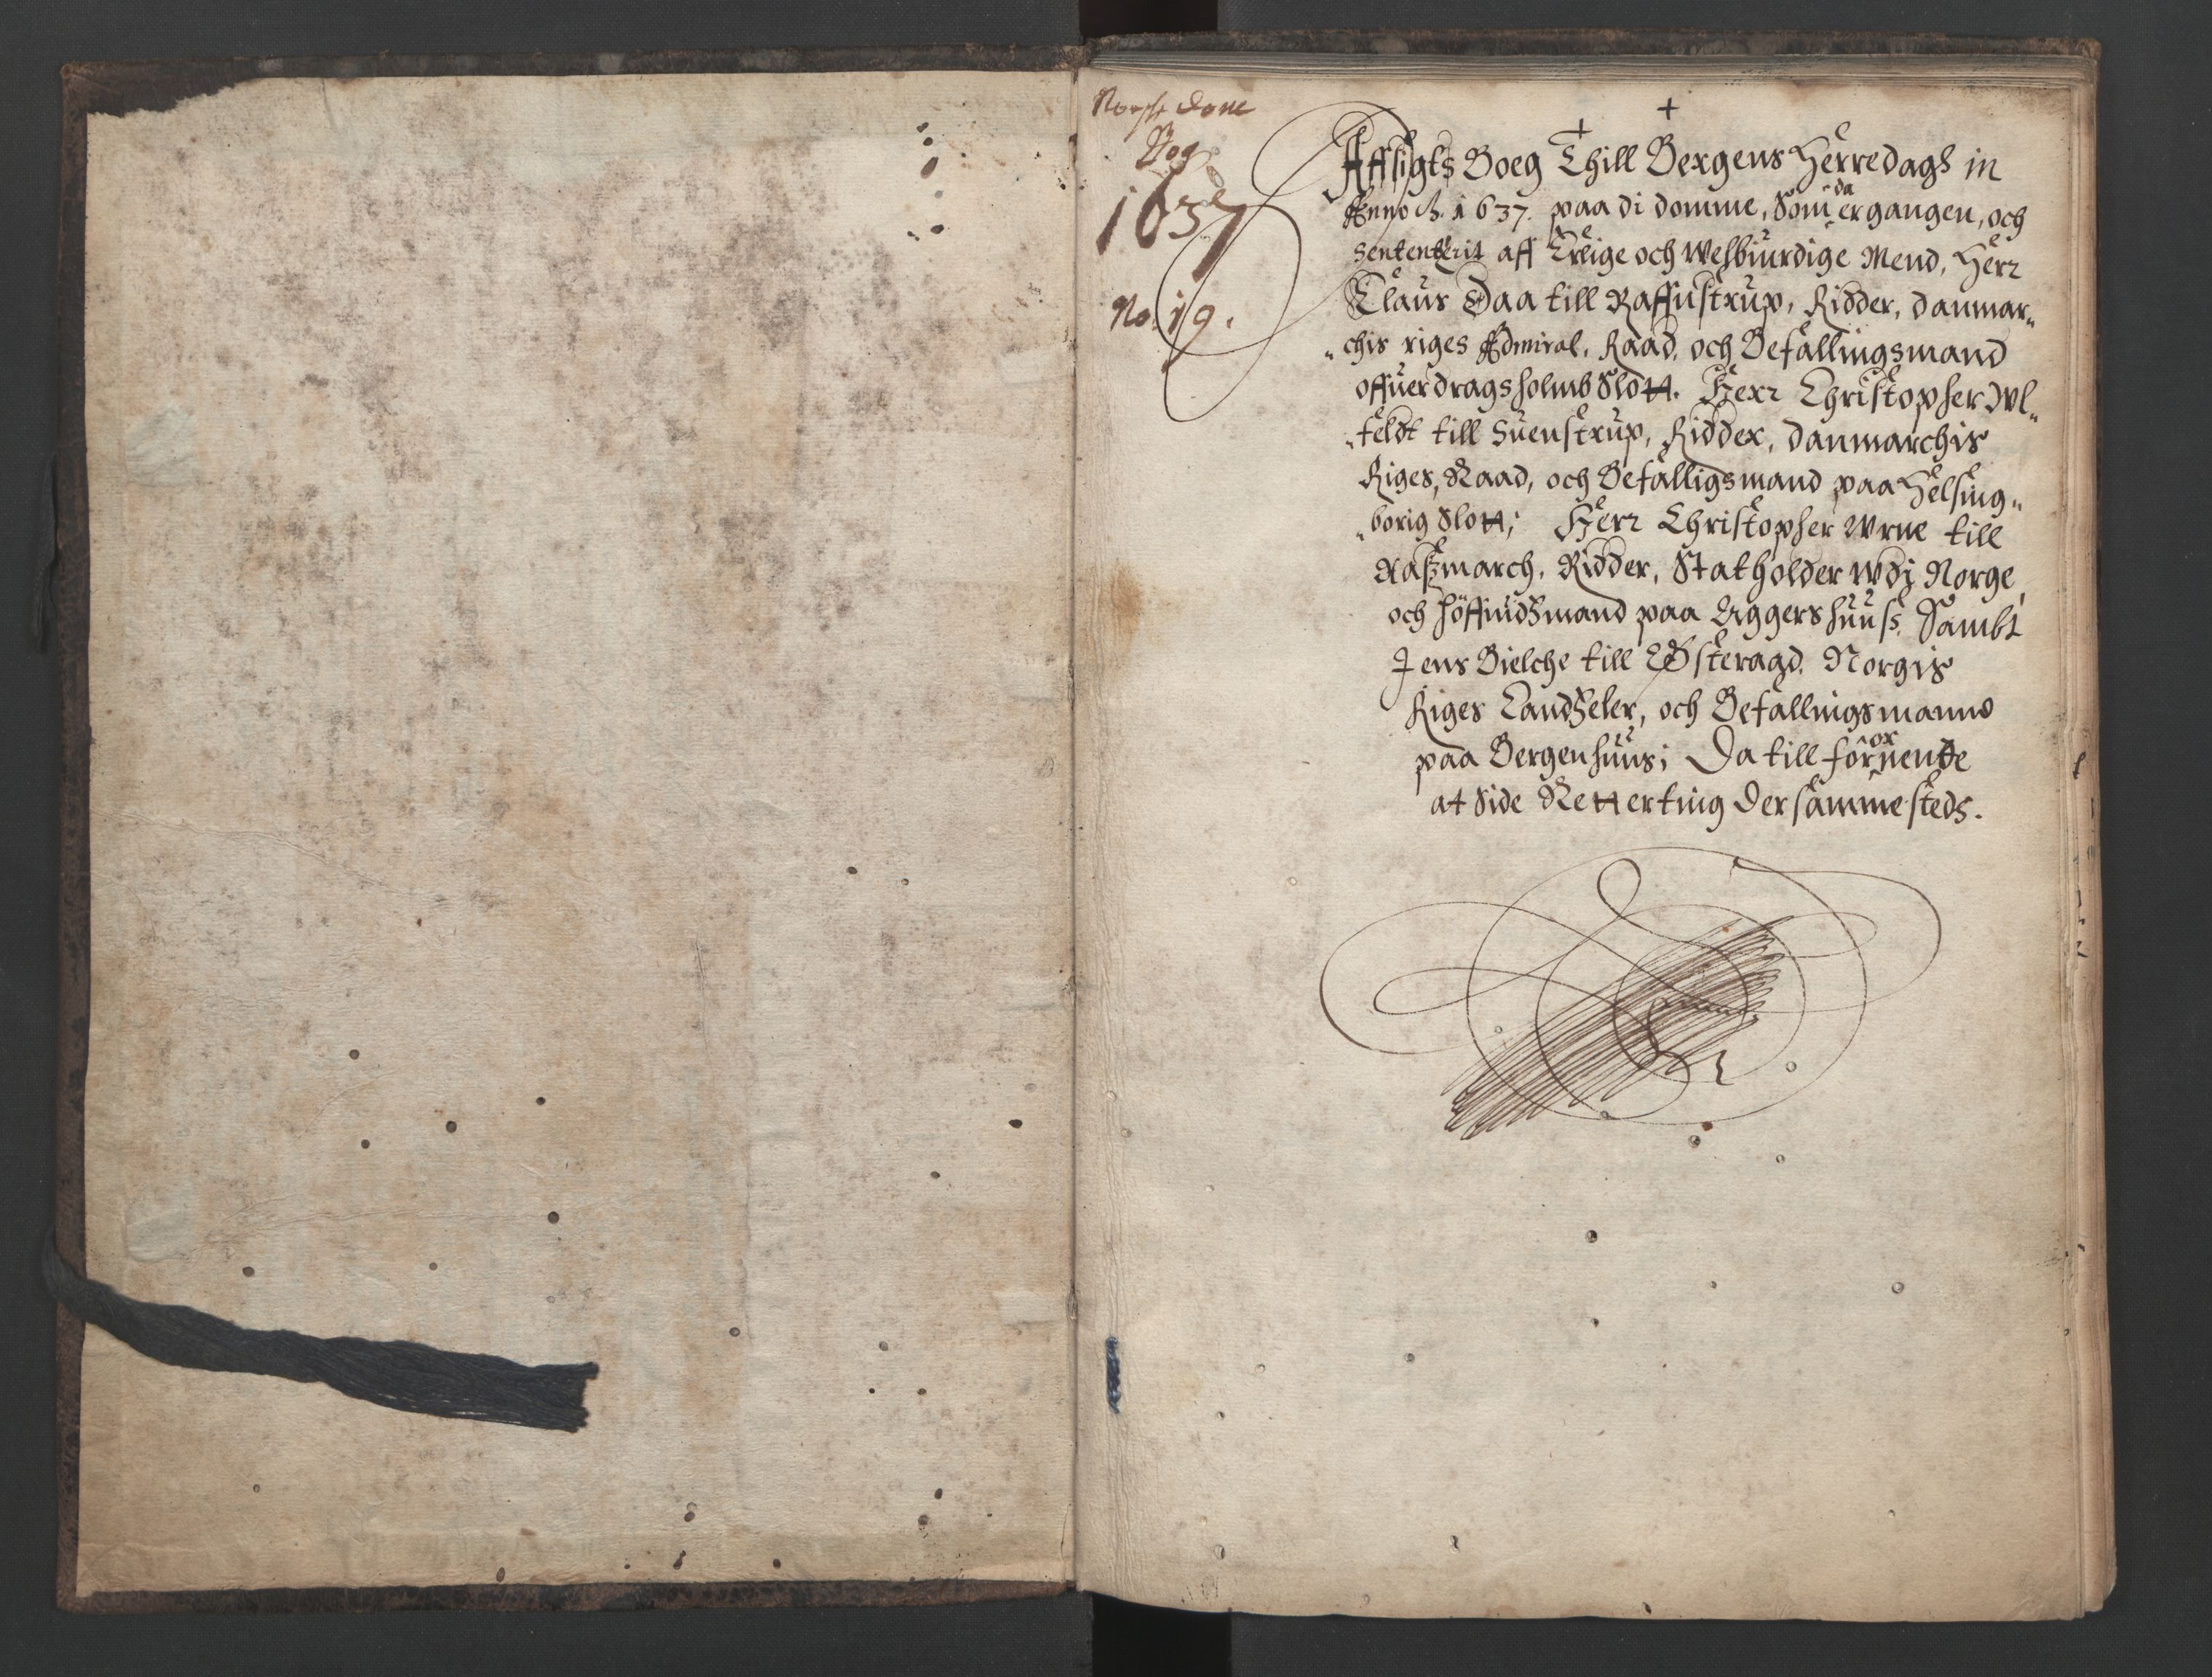 Norsk Dom
Bog
1637
No. 19.
Affsigts Boeg Thill Bergens Herredagh in
Anno &. 1637. paa di domme, Som da ergangen, och
Sententerit aff Erlige och Welbiurdige Mend, Herr
Claus Daa till Raffnstrup, Ridder, Danmar„
„chis riges Admiral, Raad, och Befallingsmand
offuer dragsholmb Slott. Herr Christopher Wl„
„feldt till Suenstrup, Ridder, Danmarchis
Riges, Raad, och Befalligsmand paa Helsing„
„borig Slott; Herr Christopher Wrne till
Aaszmarch, Ridder, Statholder wdj Norge,
och höffuidzmand paa Aggershuuss, Sambt
Jens Bielche till Østeragd, Norgis
Riges Candzeler, och Befallingsmannd
paa Bergenhuus; Da till forordnente
at Side Retterting der sammesteds.